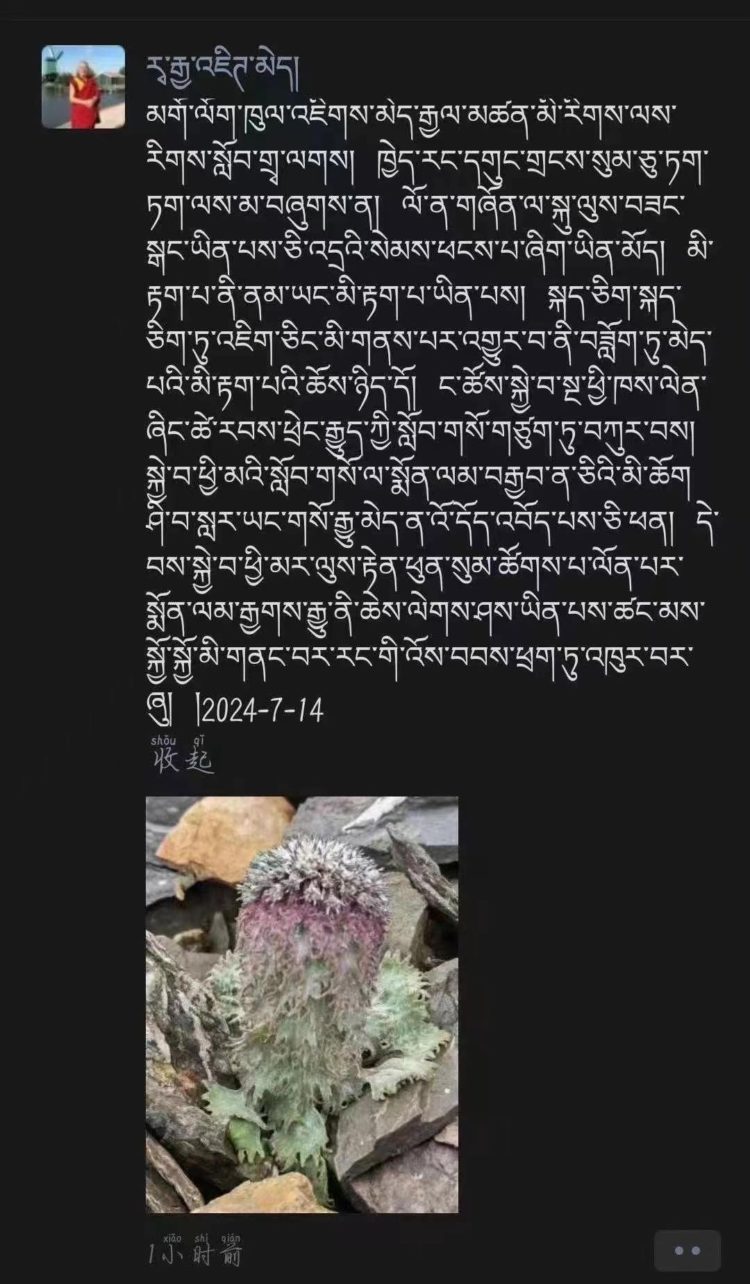 ར྇་རྒྱ་འཇིཊ་མེད།
མགོ་ལོག་ཁུལ་འཇིགས་མེད་རྒྱལ་མཚན་མི་རིགས་ལས་
རིགས་སློབ་གྲྭ་ལགས།  ཁྱེད་རང་དགུང་གྲངས་སུམ་ཅུ་ཏག་
ཏག་ལས་མ་བཞུགས་ན།  ལོ་ན་གཞོན་ལ་སྐུ་ལུས་བཟང་
སྒང་ཡིན་པས་ཅི་འདྲའི་སེམས་ཕངས་པ་ཞིག་ཡིན་མོད།  མི་
རྟག་པ་ནི་ནམ་ཡང་མི་རྟག་པ་ཡིན་པས།  སྐད་ཅིག་སྐད་
ཅིག་ཏུ་འཇིག་ཅིང་མི་གནས་པར་འགྱུར་བ་ནི་བཟློག་ཏུ་མེད་
པའི་མི་རྟག་པའི་ཆོས་ཉིད་དོ།  ང་ཚོས་སྐྱེ་བ་སྔ་ཕྱི་ཁས་ལེན་
ཞིང་ཚེ་རབས་ཕྲེང་རྒྱུད་ཀྱི་སློབ་གསོ་གཙུག་ཏུ་བཀུར་བས།
སྐྱེ་བ་ཕྱི་མའི་སློབ་གསོ་ལ་སྨོན་ལམ་བརྒྱབ་ན་ཅིའི་མི་ཆོག
ཤི་བ་སླར་ཡང་གསོ་རྒྱུ་མེད་ན་འོ་དོད་འབོད་པས་ཅི་ཕན།  དེ་
བས་སྐྱེ་བ་ཕྱི་མར་ལུས་རྟེན་ཕུན་སུམ་ཚོགས་པ་ལོན་པར་
སྨོན་ལམ་རྒྱགས་རྒྱུ་ནི་ཆེས་ལེགས་ཤས་ཡིན་པས་ཚང་མས་
སྐྱོ་སྐྱོ་མི་གནང་བར་རང་གི་འོས་བབས་ཕྲག་ཏུ་འཁུར་བར་
ཞུ།  །2024-7-14
shōu qǐ
收起
xiǎo shí qián
1小时前